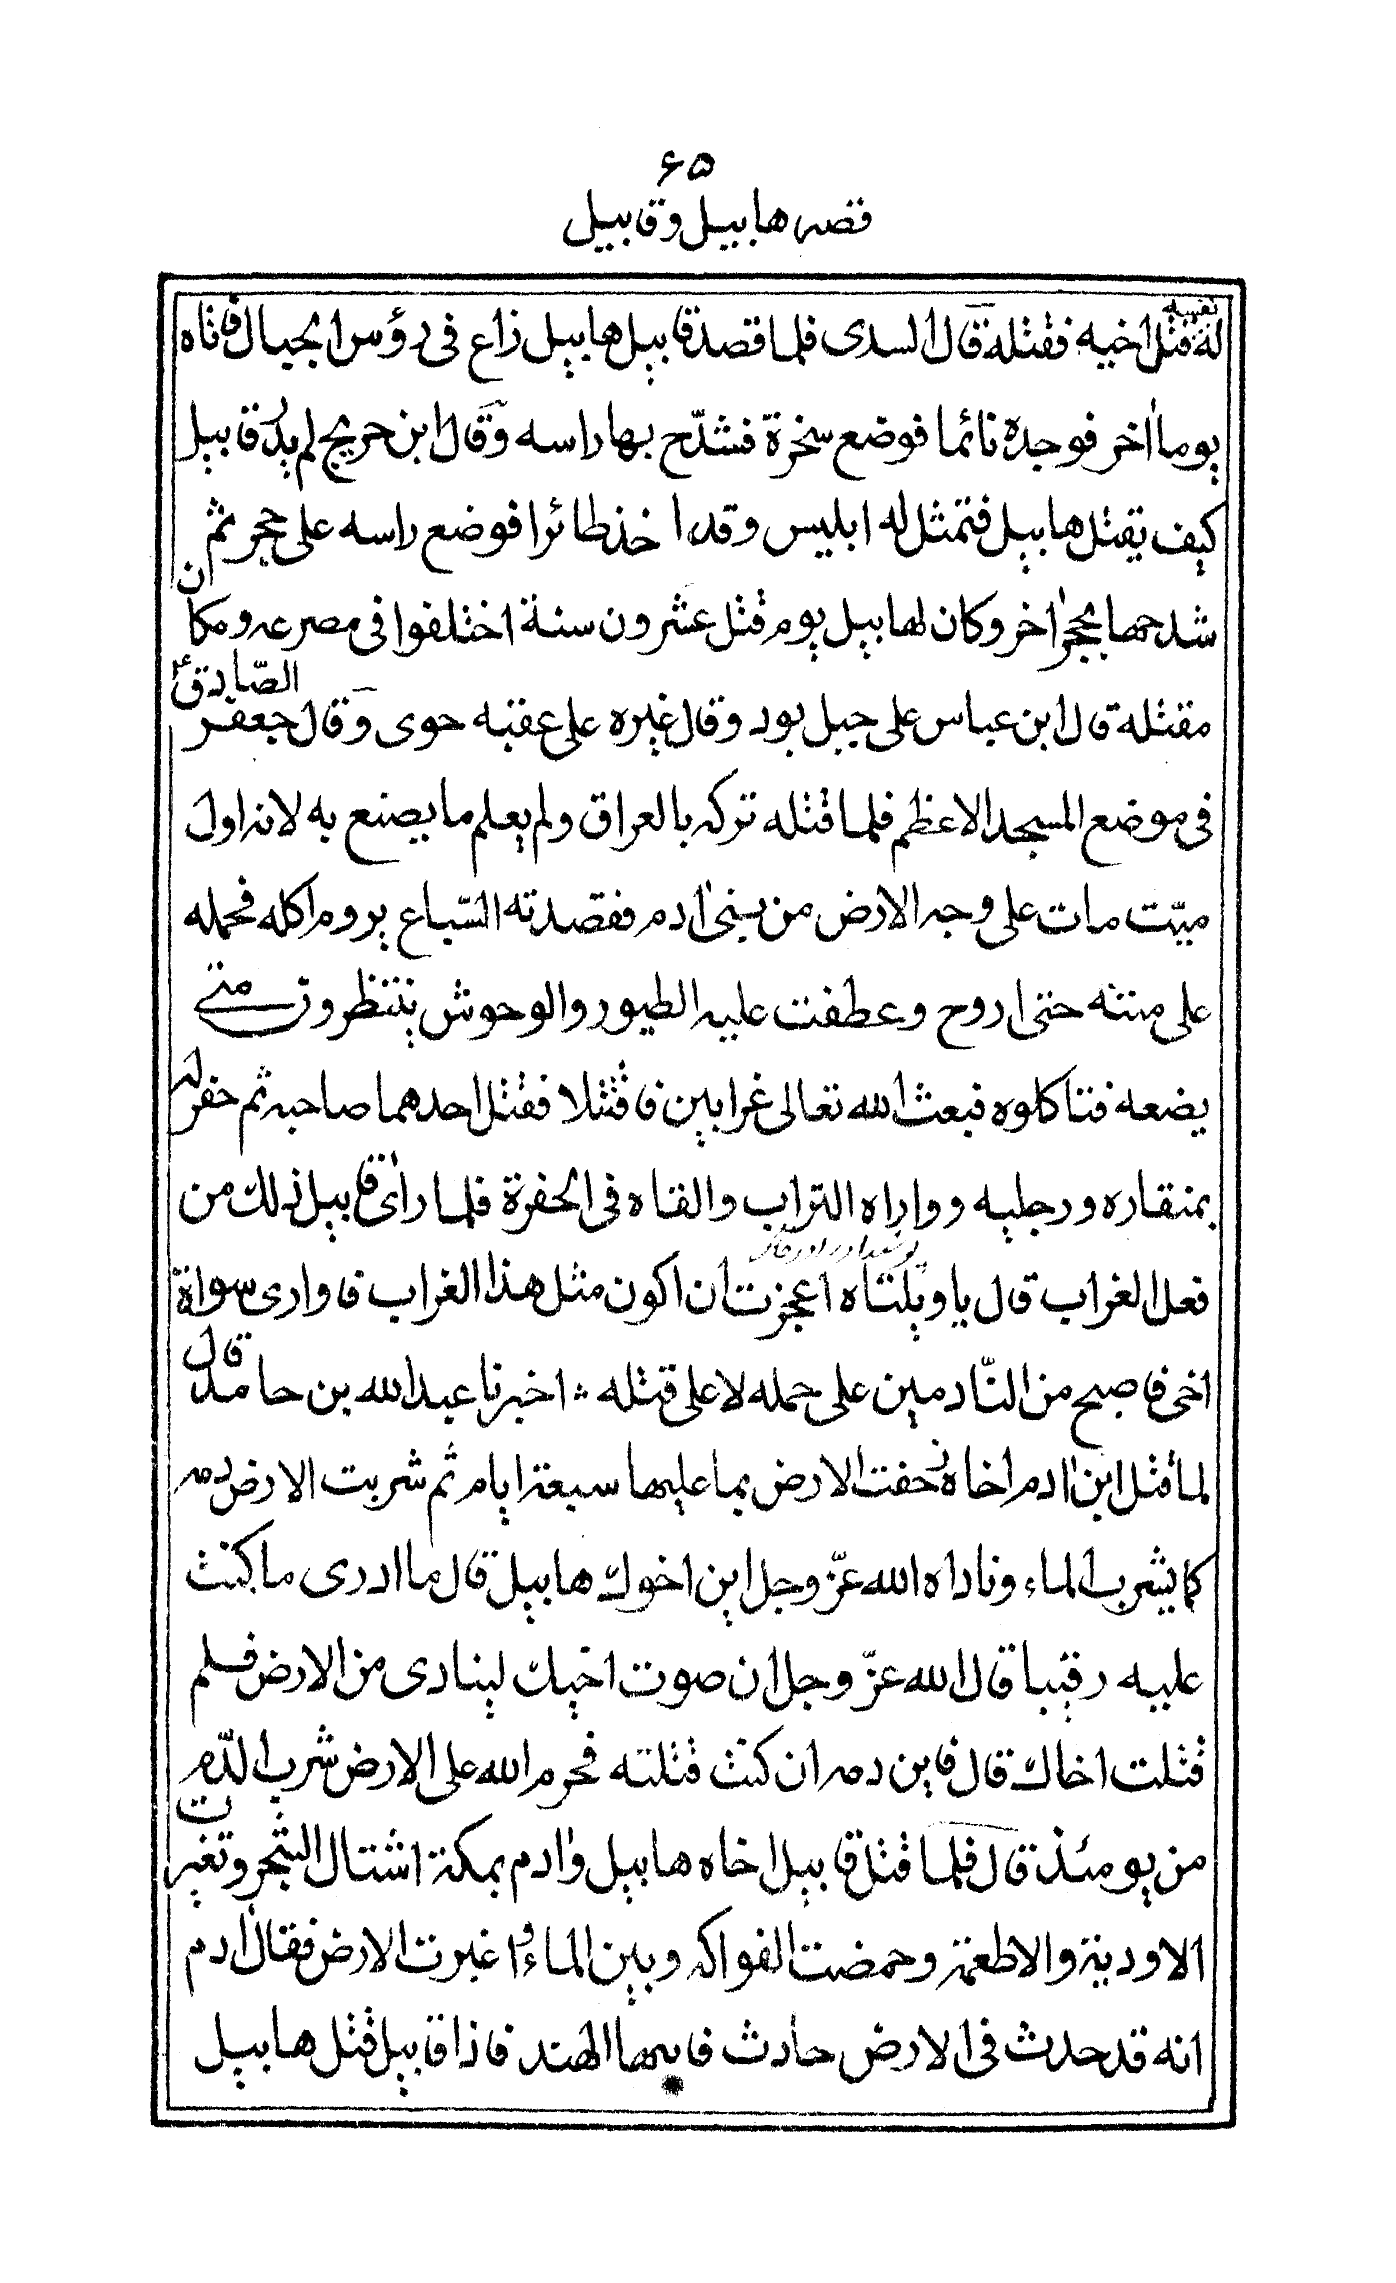 ۶۵
قصه هابیل و قابیل
نفسه
له قتل اخیه فقتله قال السدی فلما قصد قابیل هابیل زاغ فی رؤس الجبال فاتاه
یوما اخر فوجده نائما فوضع سخرة فشدّح بها راسه وقال ابن جریح لم یدر قابیل
کیف یقتل هابیل فتمثل له ابلیس وقد اخذ طائرا فوضع راسه علی حجر ثم
شدحها بحجر اخر وکان لهابیل یوم قتل عشرون سنة اختلفوا فی مصرعه ومکان
مقتله قال ابن عباس علی جبل بود وقال غیره علی عقبه حوی وقال جعفر الصّادق ع
فی موضع المسجد الاعظم فلما قتله ترکه بالعراق ولم یعلم ما یصنع به لانه اول
میّت مات علی وجه الارض من بنی ادم فقصدته السّباع یروم اکله فحمله
علی متنه حتی اروح وعطفت علیه الطیور والوحوش ینتظرون متی
یضعه فتاکلوه فبعث الله تعالی غرابین فاقتتلا فقتل احدهما صاحبه ثم حفر له
بمنقاره ورجلیه وواراه التراب والقاه فی الحفرة فلما رای قابیل ذلك من
فعل الغراب قال یا ویلتاه اعجزت ان اکون مثل هذا الغراب فاواری سواة
اخی فاصبح من النّادمین علی حمله لا علی قتله ؞ اخبرنا عبد الله بن حامد قال
لما قتل ابن ادم اخاه رجفت الارض بما علیها سبعة ایام ثم شربت الارض دمه
کما یشرب الماء وناداه الله عزّ وجل این اخوك هابیل قال ما ادری ما کنت
علیه رقیبا قال الله عزّ وجل ان صوت اخیك لینادی من الارض فلم
قتلت اخاك قال فاین دمه ان کنت قتلته فحرم الله علی الارض شرب الدّم
من یومئذ قال فلما قتل قابیل اخاه هابیل وادم بمکة اشتال الشّجر وتغیرت
الاودیة والاطعمة وحمضت الفواکه وبین الماء واغبرت الارض فقال ادم
انه قد حدث فی الارض حادث فایها الهند فاذا قابیل قتل هابیل